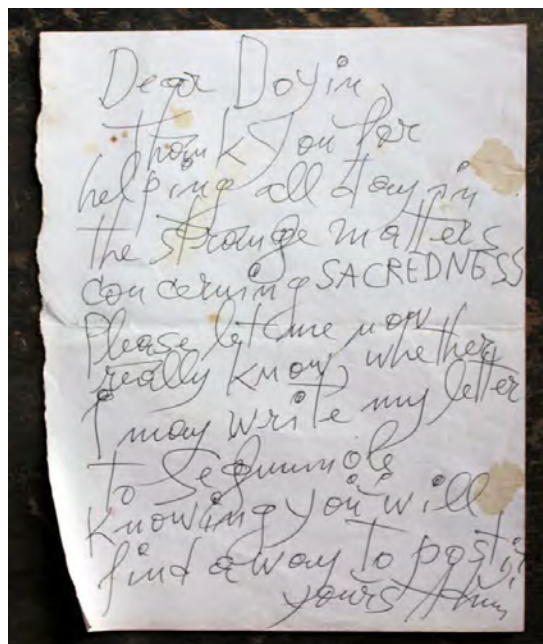 Dear Doyin,
thank you for
helping all day in
the strange matters
concerning SACREDNESS
Please let me now
really know, whether
I may write my letter
to Segunmole
knowing you will
find a way to post it
yours